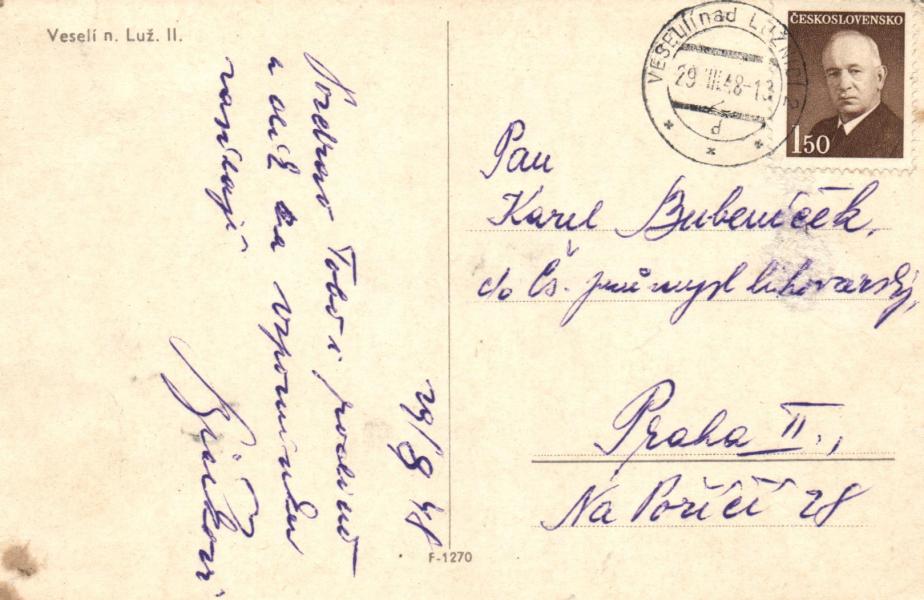 Veselí n. Luž. II.
Pozdrav Tobě i rodině
a dík za vzpomínku
zasílají
29/8 48
F-1270
VESELÍ nad LUŽNICÍ 2
29.VIII.48-13
d
ČESKOSLOVENSKO
1 50
Pan
Karel Bubeníček,
do Čs. průmysl lihovarský,
Praha II.,
Na Poříčí 28